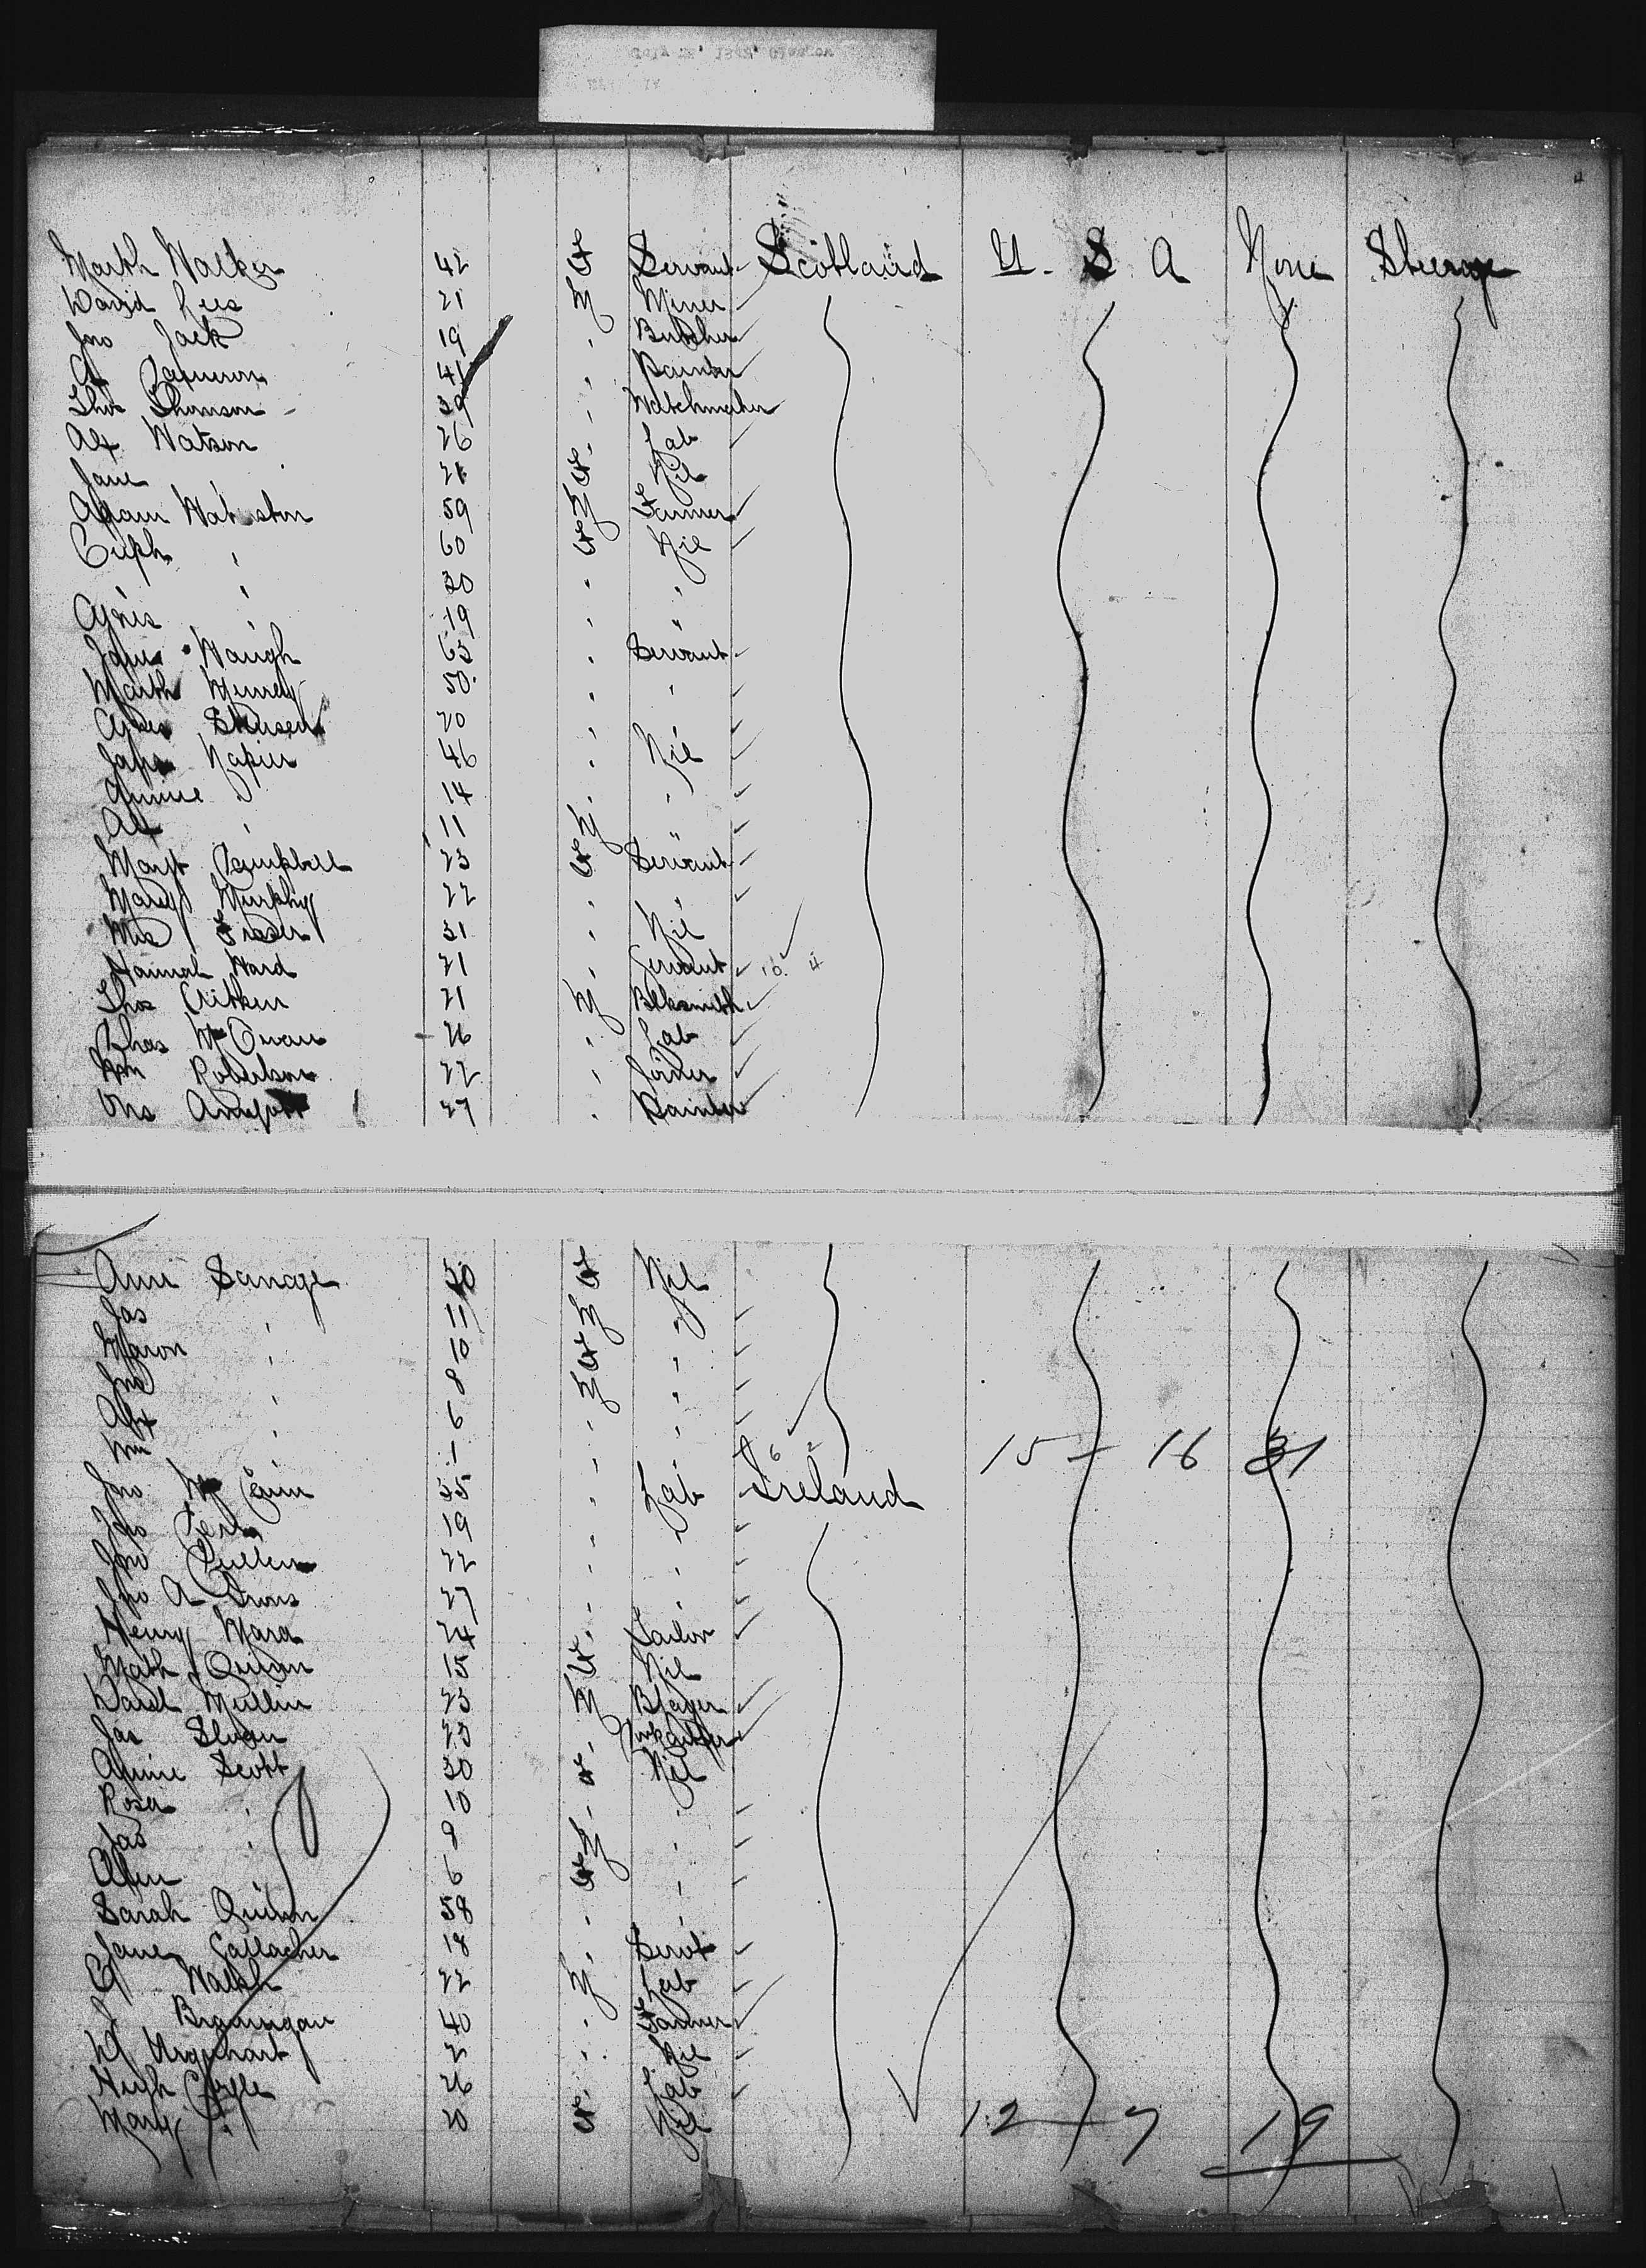 Marth Walker 42 F Servant Scotland U. S A None Steerage
David Rees 21 M Miner
Jno Jack 19 " Butcher
A Cameron 41 "
Thos Thomson 39 " Watchmaker
Alx Watson 26 " Lab
Jane " 28 F Nil
Adam Waterston 59 M Farmer
Euph " 60 F Nil
" 30 " "
Agnes " 19 " "
Jane Waugh 65 " Servant
Marth Murray 50 " "
Agnes 20 " "
Jane Napier 46 " Nil
Annie " 14 " "
Alx " 11 M "
Margt Campbell 23 F Servant
Mary Murphy 22 " "
Mrs Fraser 31 " Nil
Hannah Ward 21 " Servant
Thos Aitken 21 M Blksmith
Chas McEwan 26 " Lab
Wm Robertson 22 " Joiner
27 "
Ann Savage 30 F Nil
Jas " 11 M "
Marion " 10 F "
Jno " 8 M "
Alx " 6 " "
Wm " 1 " " 15 - 16 31
Jno Mc 35 " Lab Ireland
Jno 19 " "
Jno Cullen 22 " "
Jno A 27 " "
Henry Ward 24 " Tailor
Math Quinn 15 F Nil
Danl Mullin 23 M
Jas Sloan 23 "
Annie Scott 30 F Nil
Rosa " 10 " "
Jas " 8 M "
" 6 F "
Sarah Quinn 58 " "
Jane Gallacher 18 " Servt
Walsh 22 M Lab
J Brannigan 40 " Farmer
W Urquhart 2 " Nil
Hugh Coyle 26 " Lab
Mary " 20 F Nil 12 - 7 19